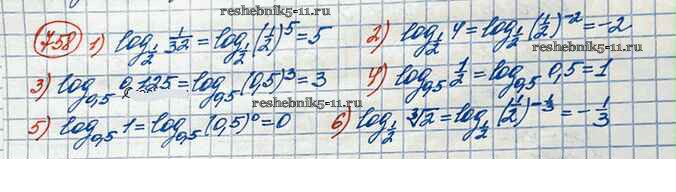 reshebnik5-11.ru
758 1) log_{1/2} 1/32 = log_{1/2} (1/2)^5 = 5 2) log_{1/2} 4 = log_{1/2} (1/2)^{-2} = -2
reshebnik5-11.ru
3) log_{0,5} 0,125 = log_{0,5} (0,5)^3 = 3 4) log_{0,5} 1/2 = log_{0,5} 0,5 = 1
reshebnik5-11.ru
5) log_{0,5} 1 = log_{0,5} (0,5)^0 = 0 6) log_{1/2} ∛2 = log_{1/2} (1/2)^{-1/3} = -1/3
reshebnik5-11.ru